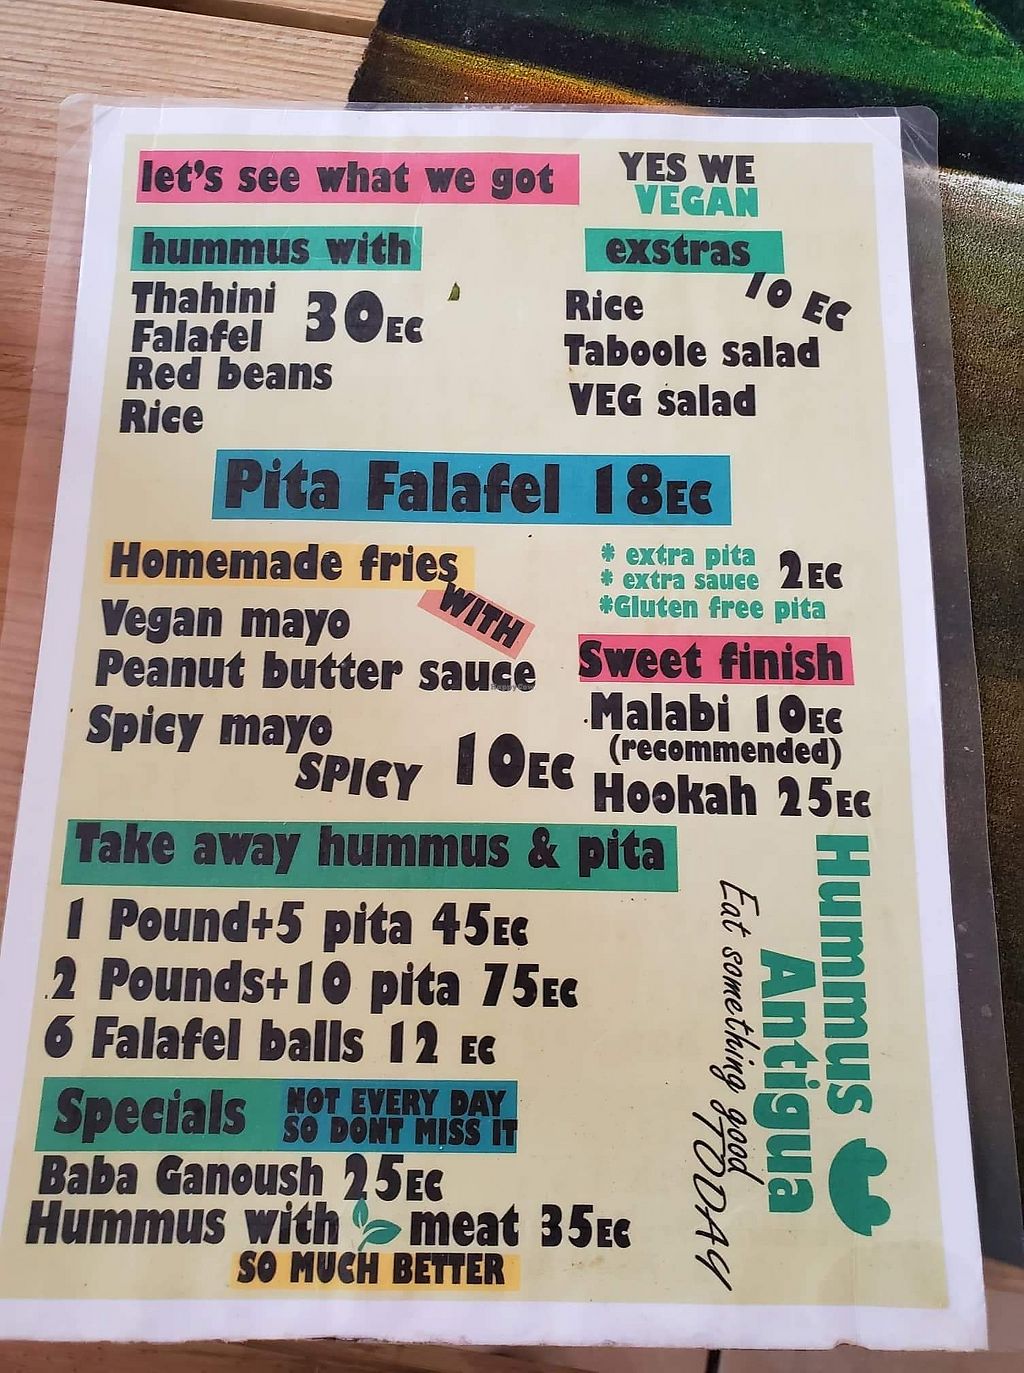 let's see what we got
YES WE
VEGAN
hummus with
Thahini
Falafel
30EC
Red beans
Rice
exstras
10 EC
Rice
Taboole salad
VEG salad
Pita Falafel 18EC
Homemade fries
WITH
Vegan mayo
Peanut butter sauce
Spicy mayo
SPICY
10EC
* extra pita
* extra sauce
2EC
*Gluten free pita
Sweet finish
Malabi 10EC
(recommended)
Hookah 25EC
Take away hummus & pita
1 Pound+5 pita 45EC
2 Pounds+10 pita 75EC
6 Falafel balls 12 EC
Specials
NOT EVERY DAY
SO DONT MISS IT
Baba Ganoush 25EC
Hummus with meat 35EC
SO MUCH BETTER
Hummus
Antigua
Eat something good
TODAY
HappyCow